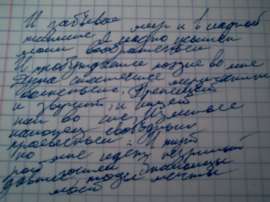 И забываю мир и в сладкой
тишине Я сладко усыплён
моим воображеньем
И пробуждается поэзия во мне
Душа стесняется лирическим
волненьем, Трепещет
и звучит, и ищет
как во сне Излиться
наконец свободным
проявленьем - И тут
ко мне идёт незримый
рой гостей
плоды мечты
моей